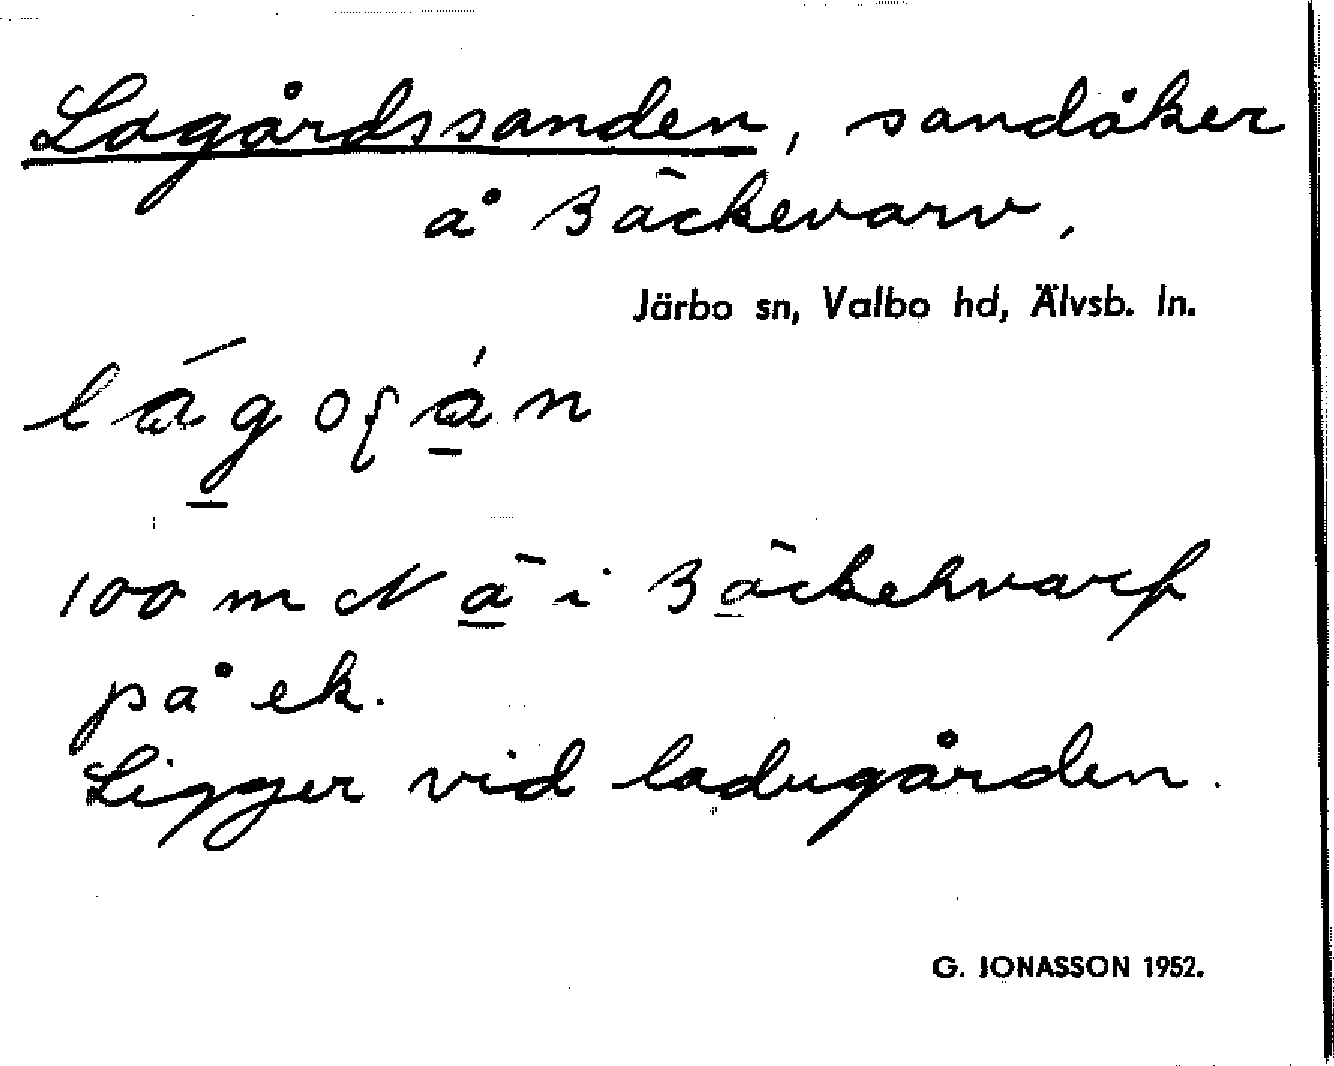 Lagårdssanden, sandåker
å Bäckevarv,
Järbo sn, Valbo hd, Älvsb. ln.
100 m N ä i Bäckehvarf
på ek.
Ligger vid ladugården.
G. JONASSON 1952.